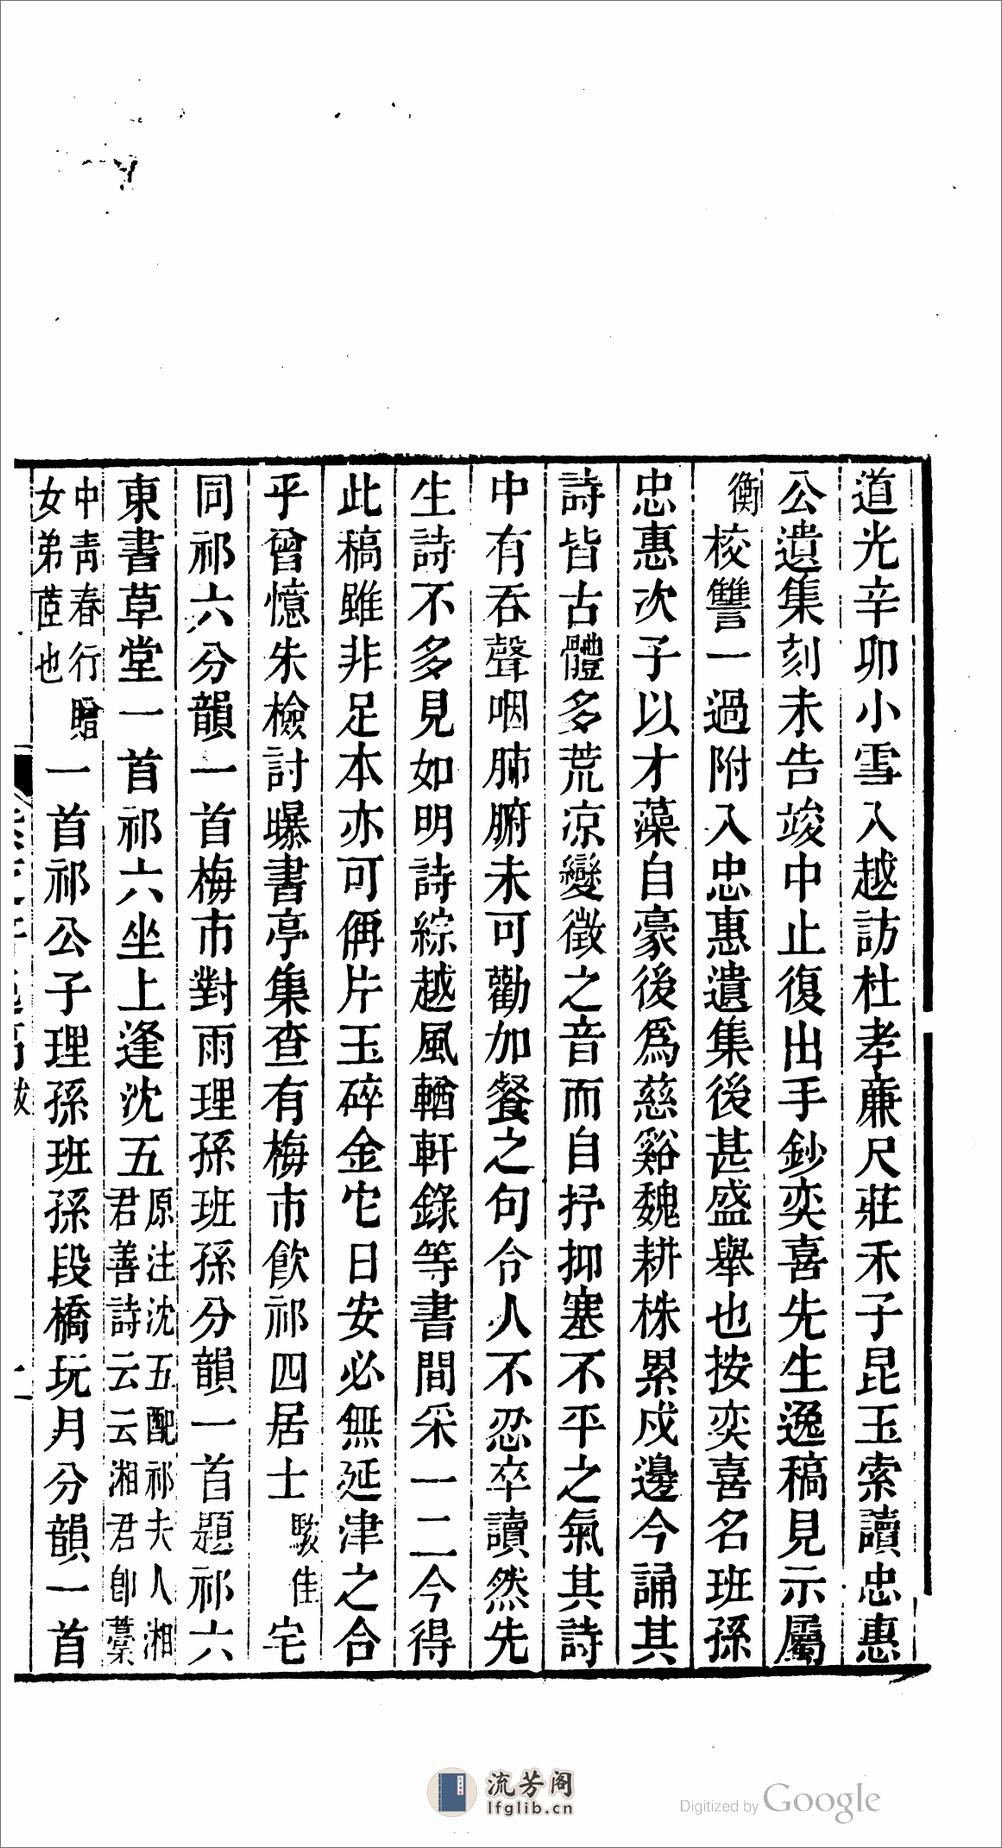 道光辛卯小雪入越訪杜孝亷尺莊禾子昆玉索讀忠惠
公遺集刻未告竣中止復出手鈔奕喜先生逸稿見示屬
衡校讐一過附入忠惠遺集後甚盛舉也按奕喜名班孫
忠惠次子以才藻自豪後爲慈谿魏耕株累戍邊今誦其
詩皆古體多荒凉變徵之音而自抒抑塞不平之氣其詩
中有吞聲咽肺腑未可勸加餐之句令人不忍卒讀然先
生詩不多見如明詩綜越風輶軒錄等書間采一二今得
此稿雖非足本亦可偁片玉碎金它日安必無延津之合
乎曾憶朱檢討曝書亭集查有梅市飲祁四居士駿佳宅
同祁六分韻一首梅市對雨理孫班孫分韻一首題祁六
東書草堂一首祁六坐上逢沈五原注沈五配祁夫人湘
君善詩云云湘君卽藁
中青春行贈
女弟茝也
一首祁公子理孫班孫段橋玩月分韻一首
跋
流芳阁
lfglib.cn
Digitized by Google